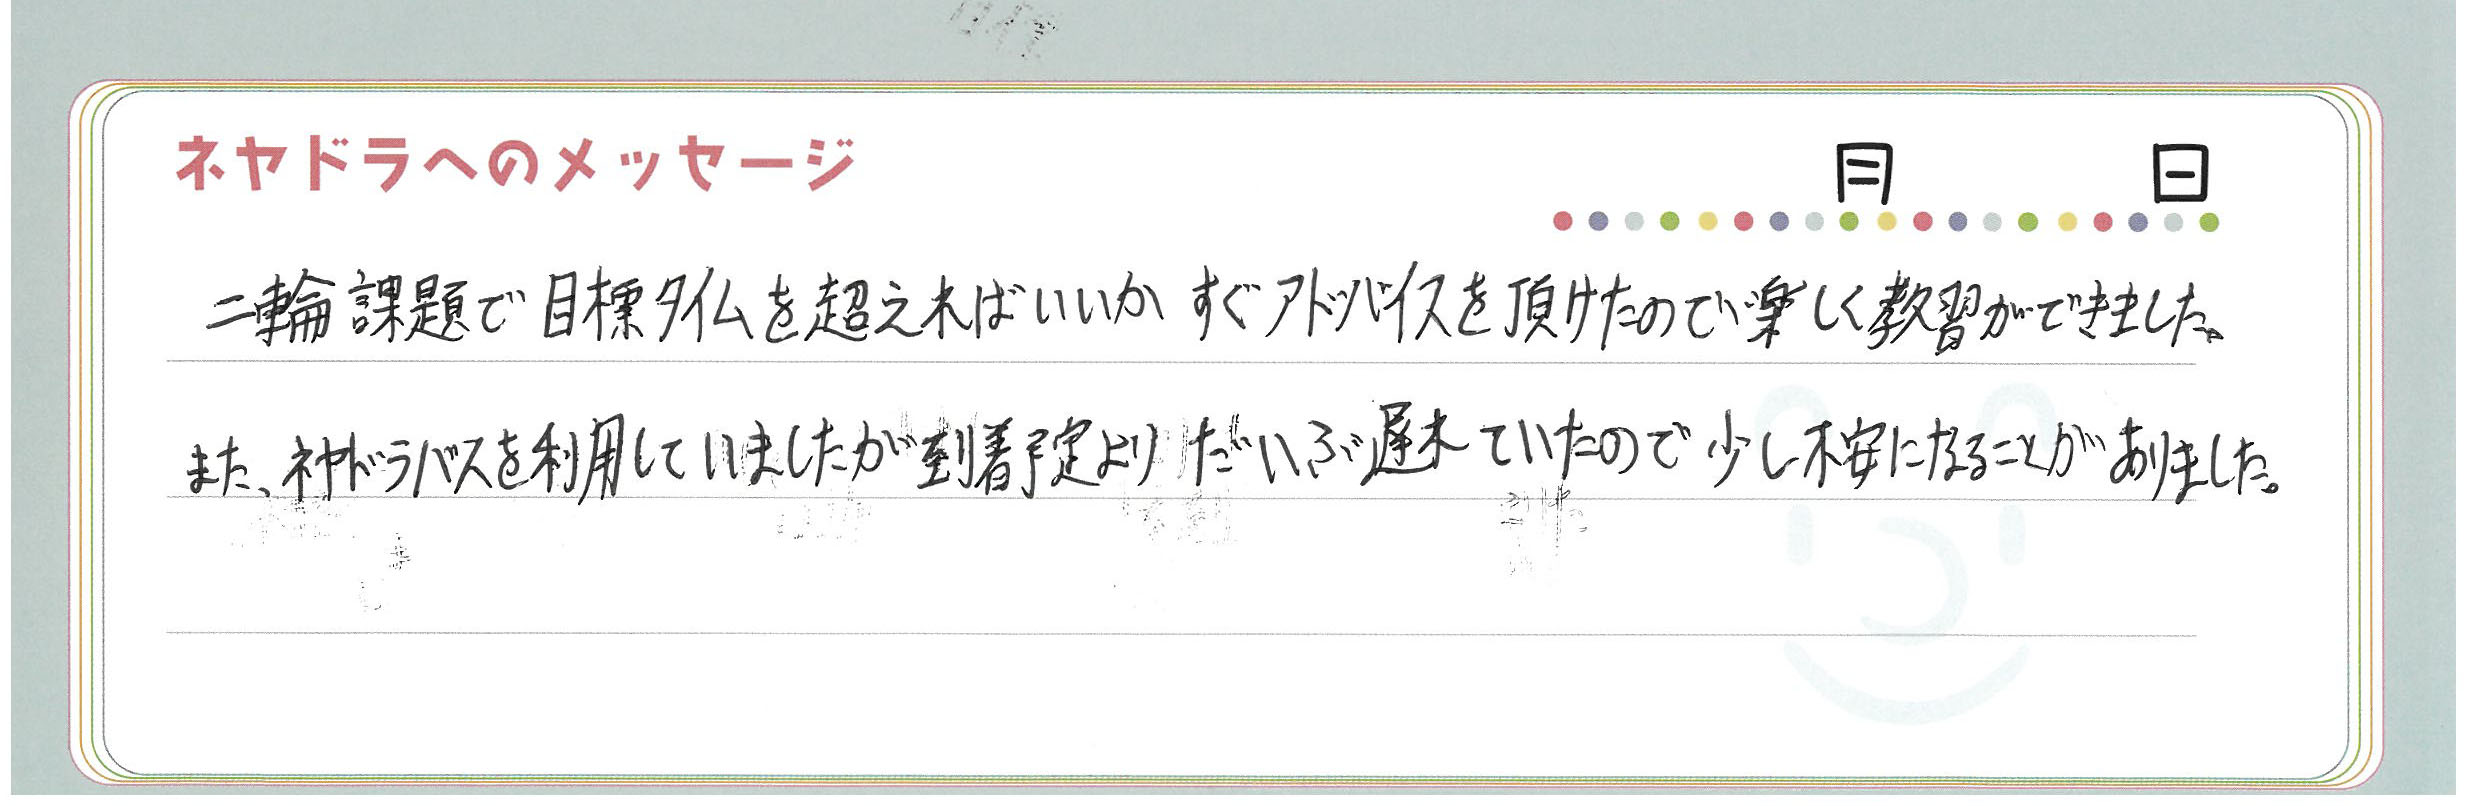 ネヤドラへのメッセージ
月 日
二輪課題で目標タイムを超えればいいか すぐアドバイスを頂けたので楽しく教習ができました。
また、ネヤドラバスを利用していましたが到着予定よりだいぶ遅れていたので少し不安になることがありました。